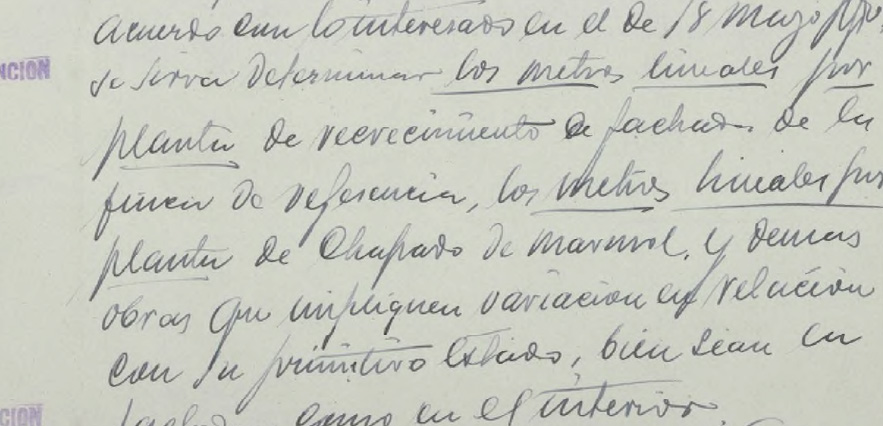 acuerdo con lo interesado en el de 18 Mayo
NCION
se sirva determinar los metros lineales por
planta de recrecimiento de fachada de la
finca de referencia, los metros lineales por
planta de Chapado de marmol, y demas
obras que impliquen variación en relación
con su primitivo Estado, bien sean en
CION
como en el interior.